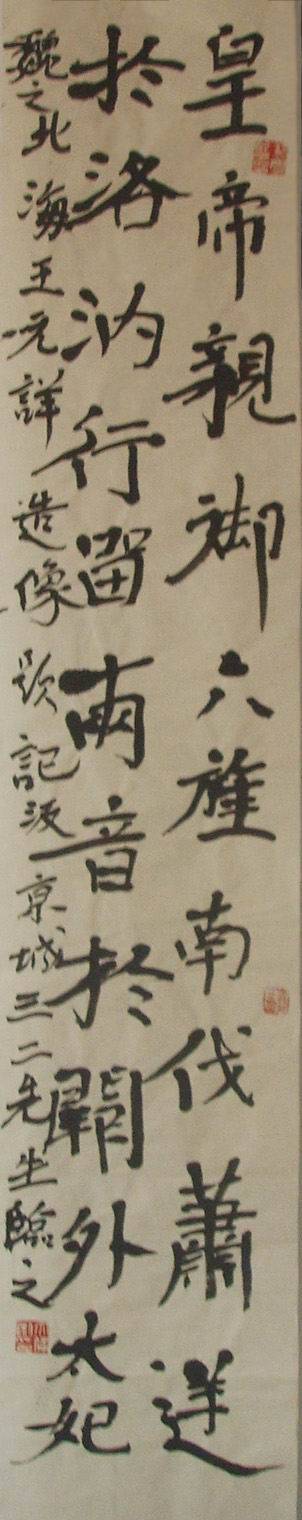 皇帝親御六旌南伐蕭逆
於洛汭行留兩音於闕外太妃
魏之北海王元詳造像題記京城三二先生臨之